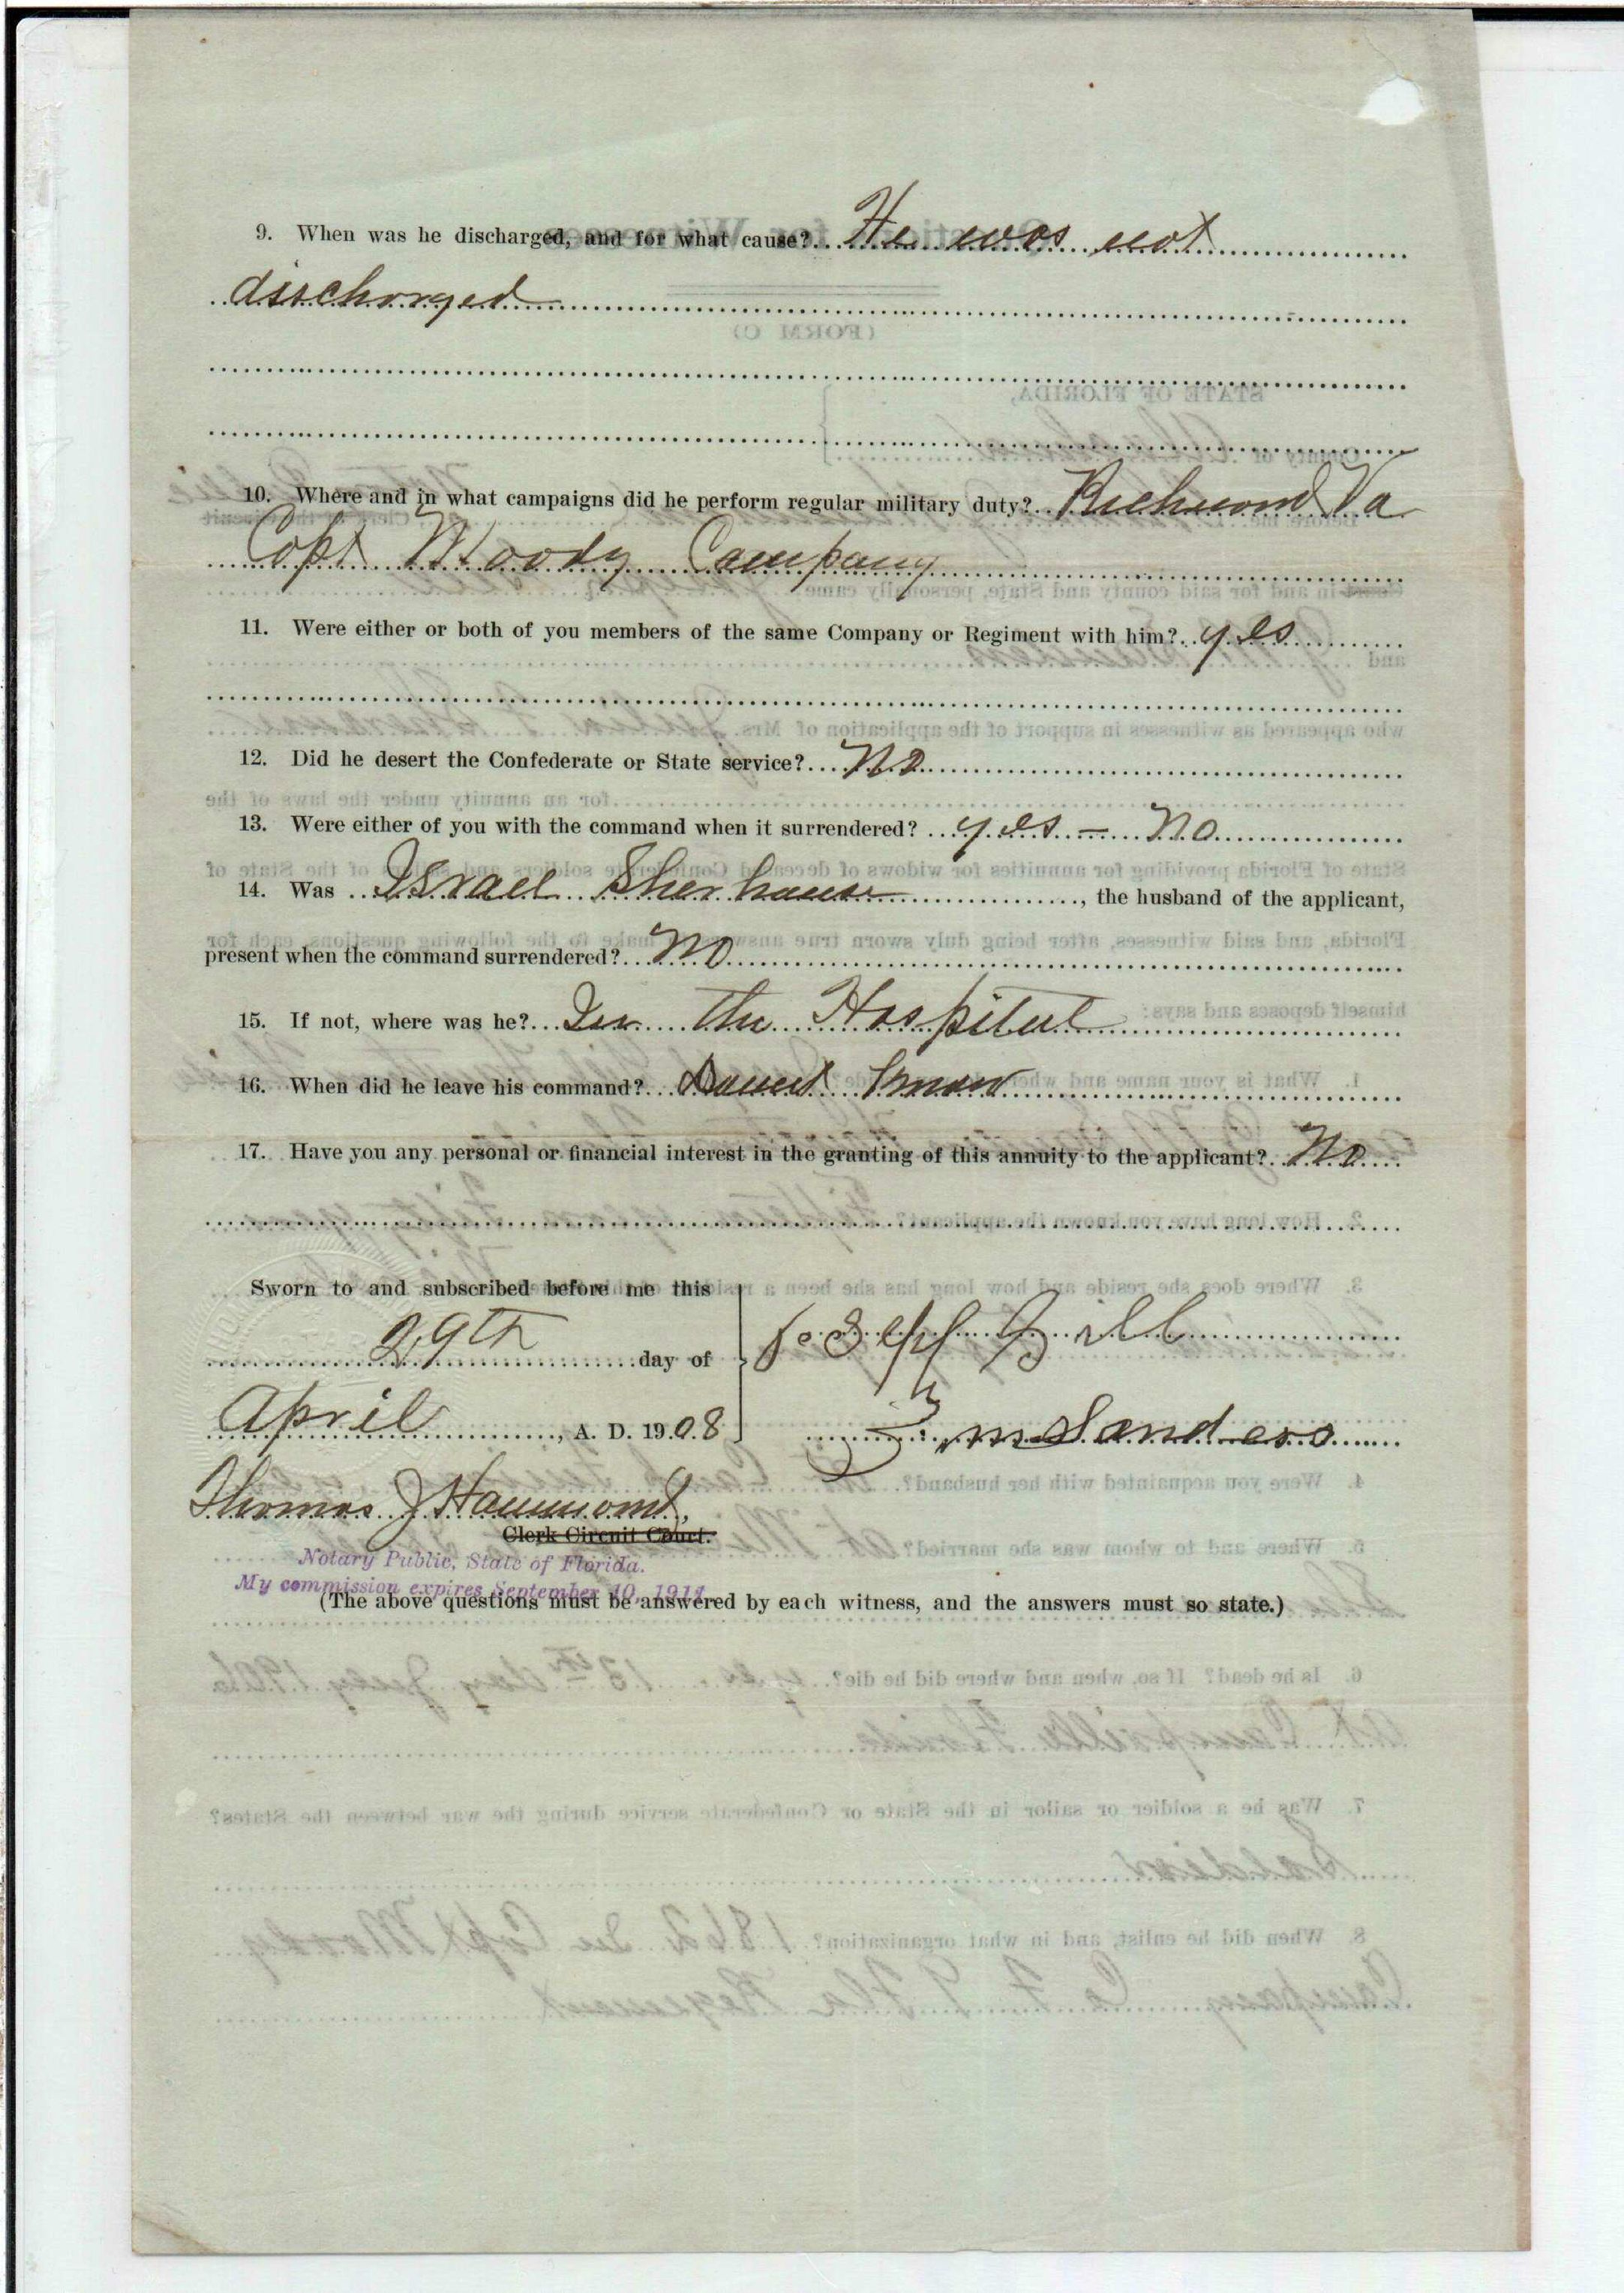 9. When was he discharged, and for what cause? He was not
discharged
10. Where and in what campaigns did he perform regular military duty? Richmond Va
Capt Moody Company
11. Were either or both of you members of the same Company or Regiment with him? yes
12. Did he desert the Confederate or State service? No
13. Were either of you with the command when it surrendered? yes - No
14. Was Israel Sherhouse, the husband of the applicant,
present when the command surrendered? No
15. If not, where was he? In the Hospital
16. When did he leave his command? Dont know
17. Have you any personal or financial interest in the granting of this annuity to the applicant? No
Sworn to and subscribed before me this
29th day of
April, A. D. 1908
Joseph Gill
J M Sanders
Thomas J Hammond,
Clerk Circuit Court.
Notary Public, State of Florida.
My commission expires September 10, 1911.
(The above questions must be answered by each witness, and the answers must so state.)